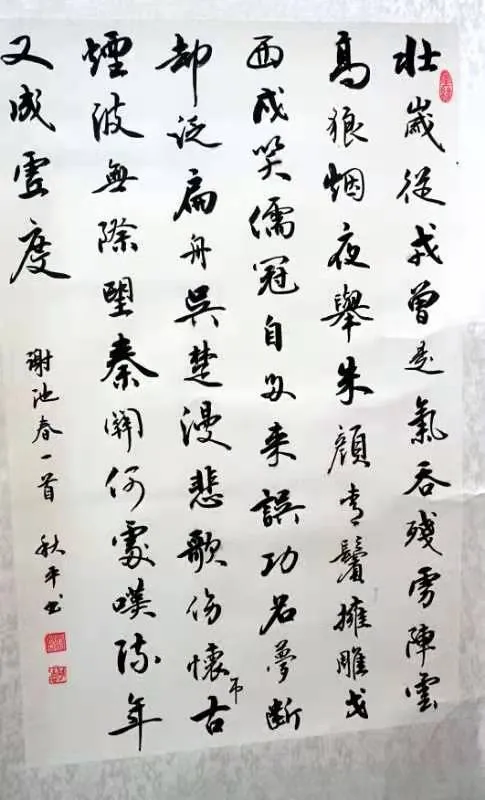 壯歲從戎曾是氣吞殘虜陣雲
高狼烟夜舉朱顏青鬢擁雕戈
西戍笑儒冠自多来誤功名夢斷
却泛扁舟吳楚漫悲歌傷懷吊古
煙波無際望秦關何處嘆流年
又成虛度
謝池春一首 秋平书